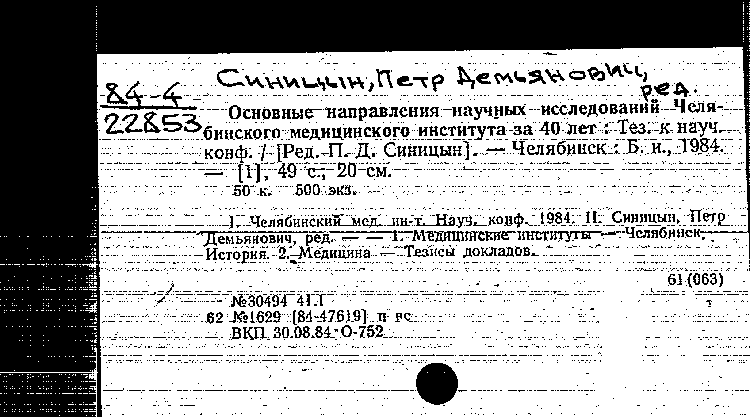 Синицын, Петр Демьянович,
ред.
84-4
22853
Основные направления научных исследований Челя-
бинского медицинского института за 40 лет : Тез. к науч.
конф. / [Ред. П. Д. Синицын]. — Челябинск : Б. и., 1984.
— [1], 49 с.; 20 см.
50 к. 500 экз.
I. Челябинский мед. ин-т. Науч. конф. 1984. II. Синицын, Петр
Демьянович, ред. — — 1. Медицинские институты — Челябинск.
История. 2. Медицина — Тезисы докладов.
61(063)
№30494 41.1
62 №1629 [84-47619] п вс
ВКП 30.08.84 О-752